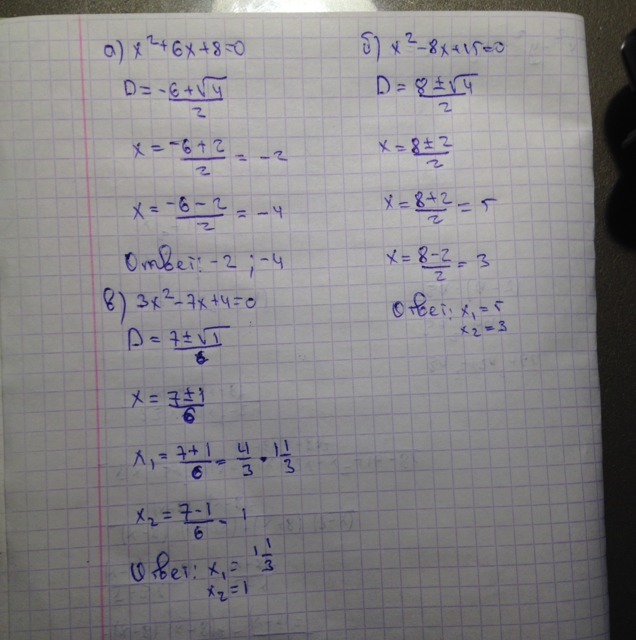 а) x²+6x+8=0
D = (-6+√4)/2
x = (-6+2)/2 = -2
x = (-6-2)/2 = -4
Ответ: -2 ; -4
б) x²-8x+15=0
D = (8±√4)/2
x = (8±2)/2
x = (8+2)/2 = 5
x = (8-2)/2 = 3
Ответ: x₁=5
x₂=3
в) 3x²-7x+4=0
D = (7±√1)/6
x = (7±1)/6
x₁ = (7+1)/6 = 4/3 = 1 1/3
x₂ = (7-1)/6 = 1
Ответ: x₁ = 1 1/3
x₂=1